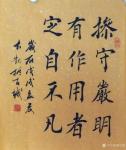 操守嚴明
有作用者
定自不凡
歲在戊戌立夏